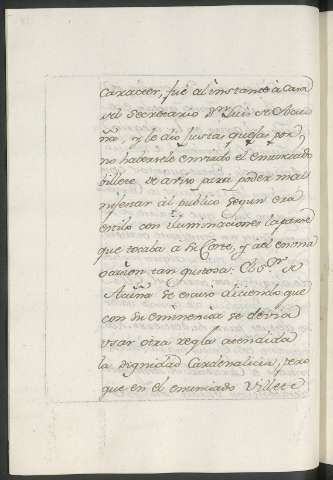 caracter, fuè al instante à Casa
del Secretario Dn Luis de Acu
ña, y le dio justas quejas por
no habersele enviado el enunciado
villete de aviso para poder ma
nifestar al publico segun era
estilo con iluminaciones la parte
que tocaba à su Corte, y a el en
ocasion tan gustosa: El Sr. de
Acuña se escusó diciendo que
con su eminencia se debia
usar otra regla atendida
la dignidad Cardenalicia, pero
que en el enunciado Villete